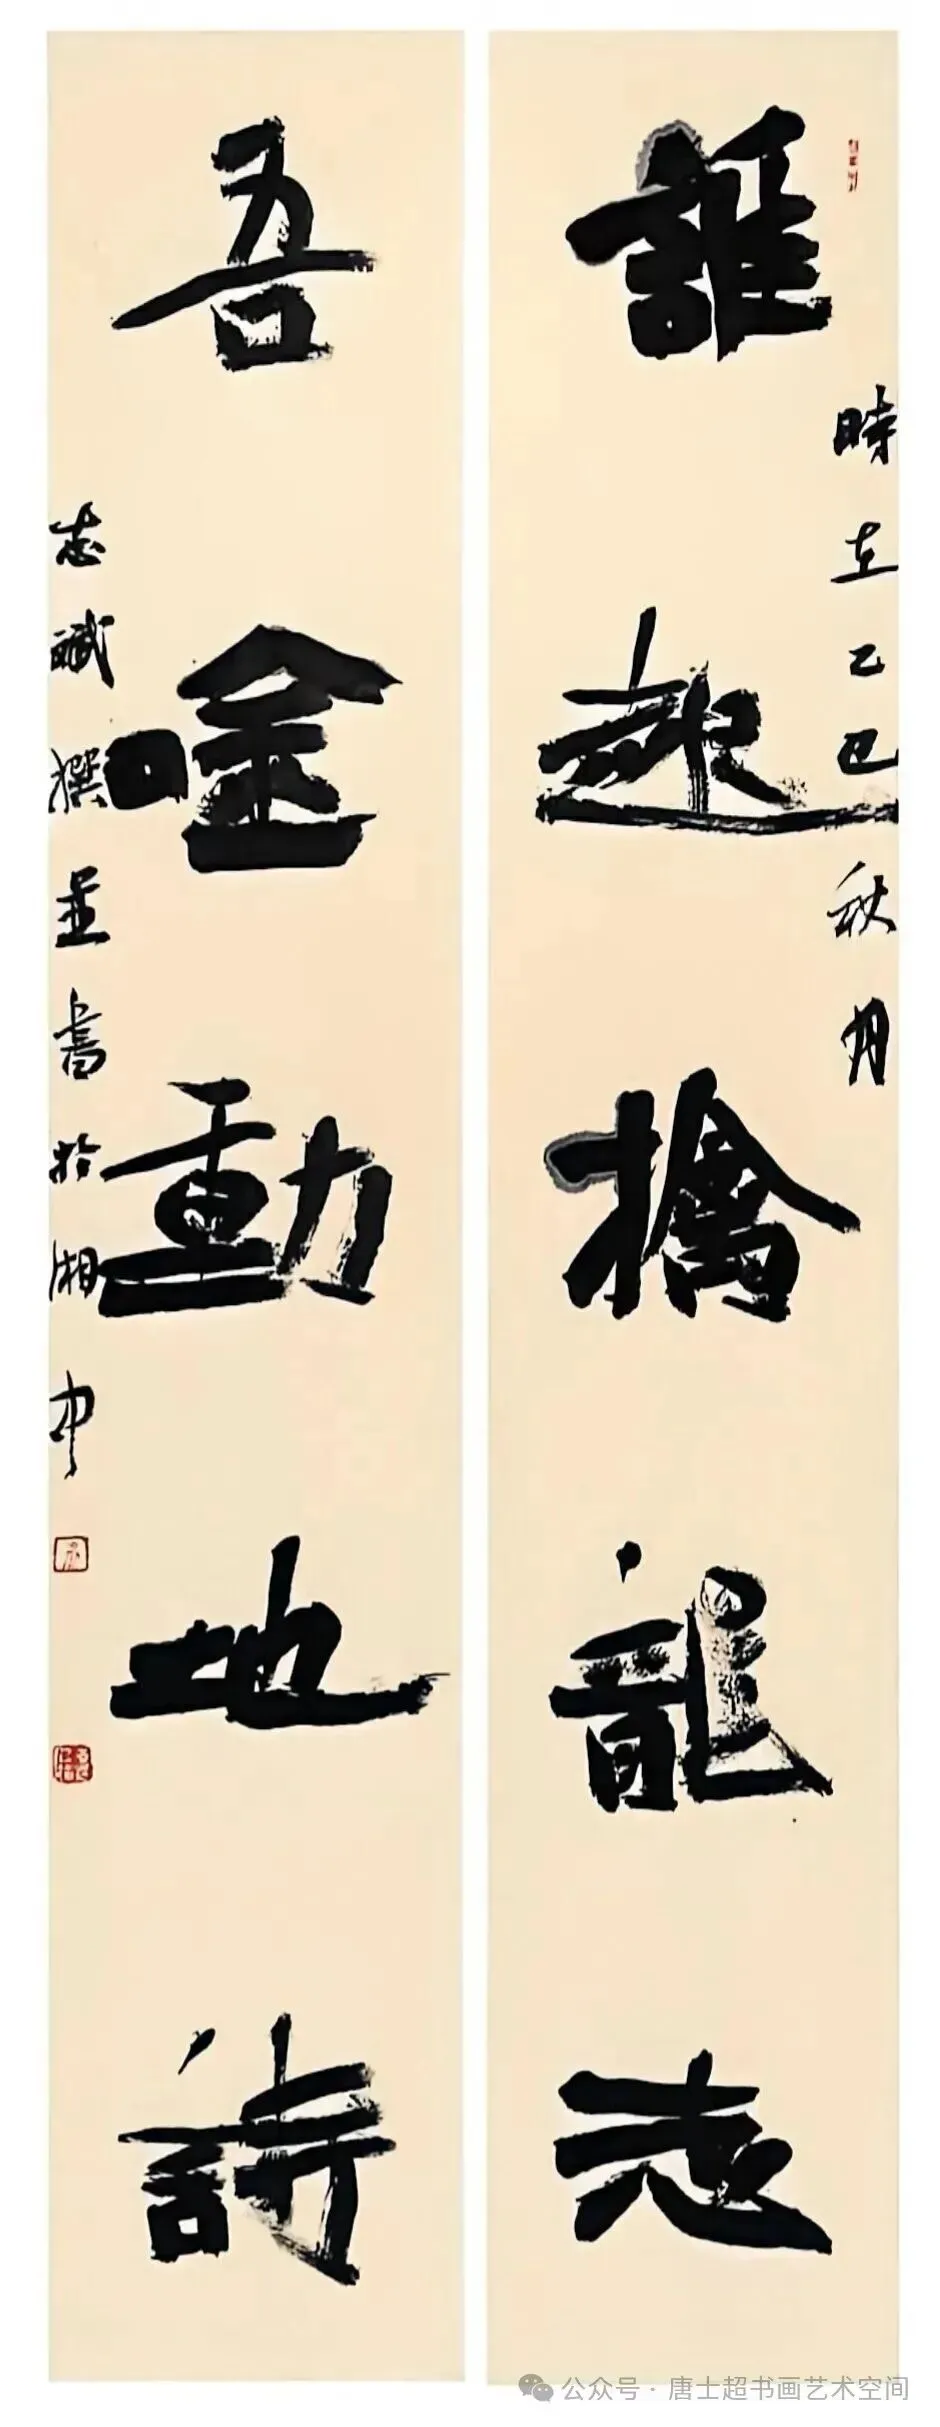 誰擒龍志
時在乙巳秋月
吾唫動地詩
志斌撰並書於湘中
公众号·唐士超书画艺术空间